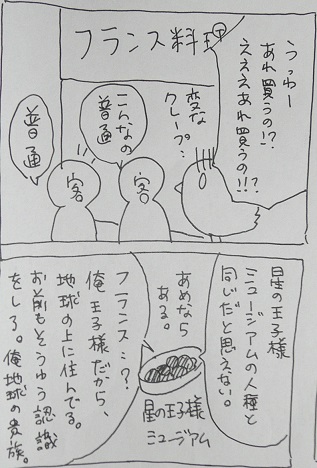 フランス料理
うっわー
あれ買うの!?
えええあれ買うの!!?
変な
クレープ…
こんなの
普通
普通
客
客
星の王子様
ミュージアムの人種と
同じだと思えない。
あめなら
ある。
星の王子様
ミュージアム
フランス…?
俺王子様だから、
地球の上に住んでる。
お前もそうゆう認識
をしろ。俺地球の貴族。